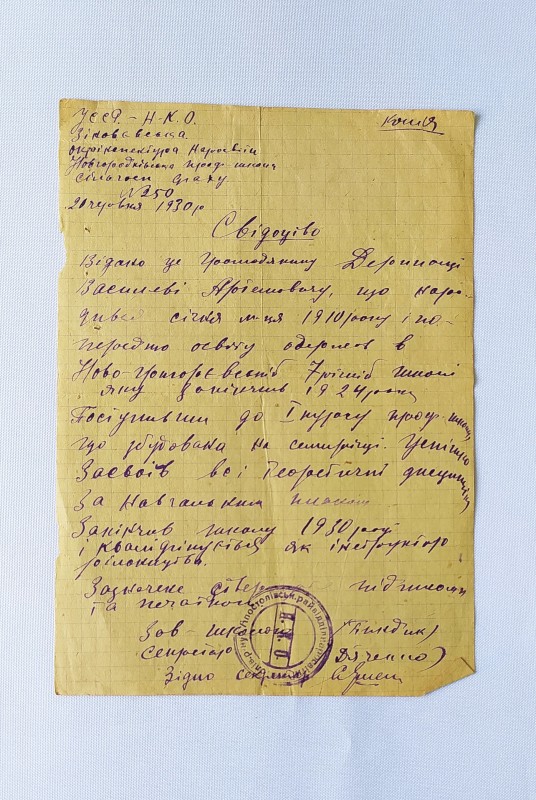 УССР. - Н-К-О.
копія
Зіновєвська
окрінспектура Наросвіти
Новгородківська проф. школа
сільгосп. фаху
№250
20 червня 1930 р
Свідоцтво
Видано це громадянину
Василеві Артемовичу, що наро-
дився січня м-ця 1910 року і по-
передню освіту одержав в
7 річній школі
яку закінчив 1924 року
Поступивши до І курсу проф. школи,
що збудована на семирічці. Успішно
Засвоїв всі теоретичні дисципліни
За навчальним планом
Закінчив школу 1930 року
і кваліфікується як інструктор
рільництва.
Зазначене підписами
та печаткою
Зав-школою
Секретар Дяченко)
Згідно секретар
Н.К.О